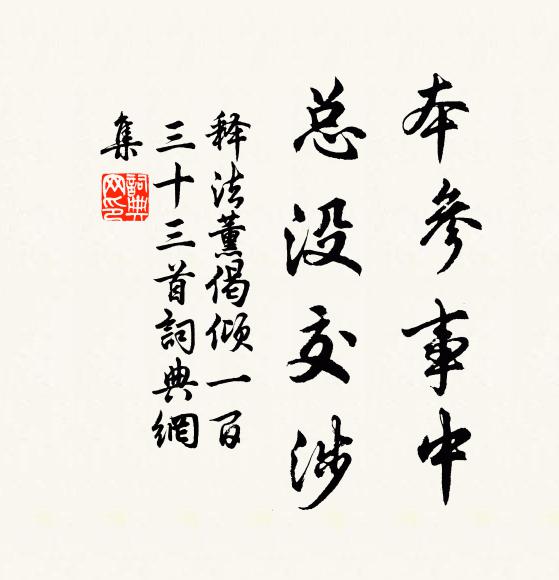 本參事中
总没交涉
释法薰偈倾一百
三十三首詞典網
集
詞典网印